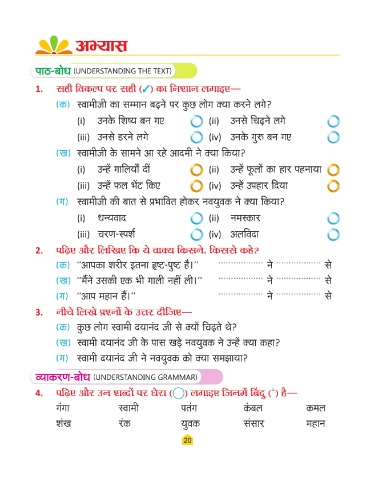 अभ्यास
पाठ-बोध (UNDERSTANDING THE TEXT)
1. सही विकल्प पर सही (✓) का निशान लगाइए—
(क) स्वामीजी का सम्मान बढ़ने पर कुछ लोग क्या करने लगे?
(i) उनके शिष्य बन गए (ii) उनसे चिढ़ने लगे
(iii) उनसे डरने लगे (iv) उनके गुरु बन गए
(ख) स्वामीजी के सामने आ रहे आदमी ने क्या किया?
(i) उन्हें गालियाँ दीं (ii) उन्हें फूलों का हार पहनाया
(iii) उन्हें फल भेंट किए (iv) उन्हें उपहार दिया
(ग) स्वामीजी की बात से प्रभावित होकर नवयुवक ने क्या किया?
(i) धन्यवाद (ii) नमस्कार
(iii) चरण-स्पर्श (iv) अलविदा
2. पढ़िए और लिखिए कि ये वाक्य किसने, किससे कहे?
(क) “आपका शरीर इतना हृष्ट-पुष्ट है।” ................ ने ................ से
(ख) “मैंने उसकी एक भी गाली नहीं ली।” ................ ने ................ से
(ग) “आप महान हैं।” ................ ने ................ से
3. नीचे लिखे प्रश्नों के उत्तर दीजिए—
(क) कुछ लोग स्वामी दयानंद जी से क्यों चिढ़ते थे?
(ख) स्वामी दयानंद जी के पास खड़े नवयुवक ने उन्हें क्या कहा?
(ग) स्वामी दयानंद जी ने नवयुवक को क्या समझाया?
व्याकरण-बोध (UNDERSTANDING GRAMMAR)
4. पढ़िए और उन शब्दों पर घेरा (◯) लगाइए जिनमें बिंदु (ं) है—
गंगा स्वामी पतंग कंबल कमल
शंख रंक युवक संसार महान
20